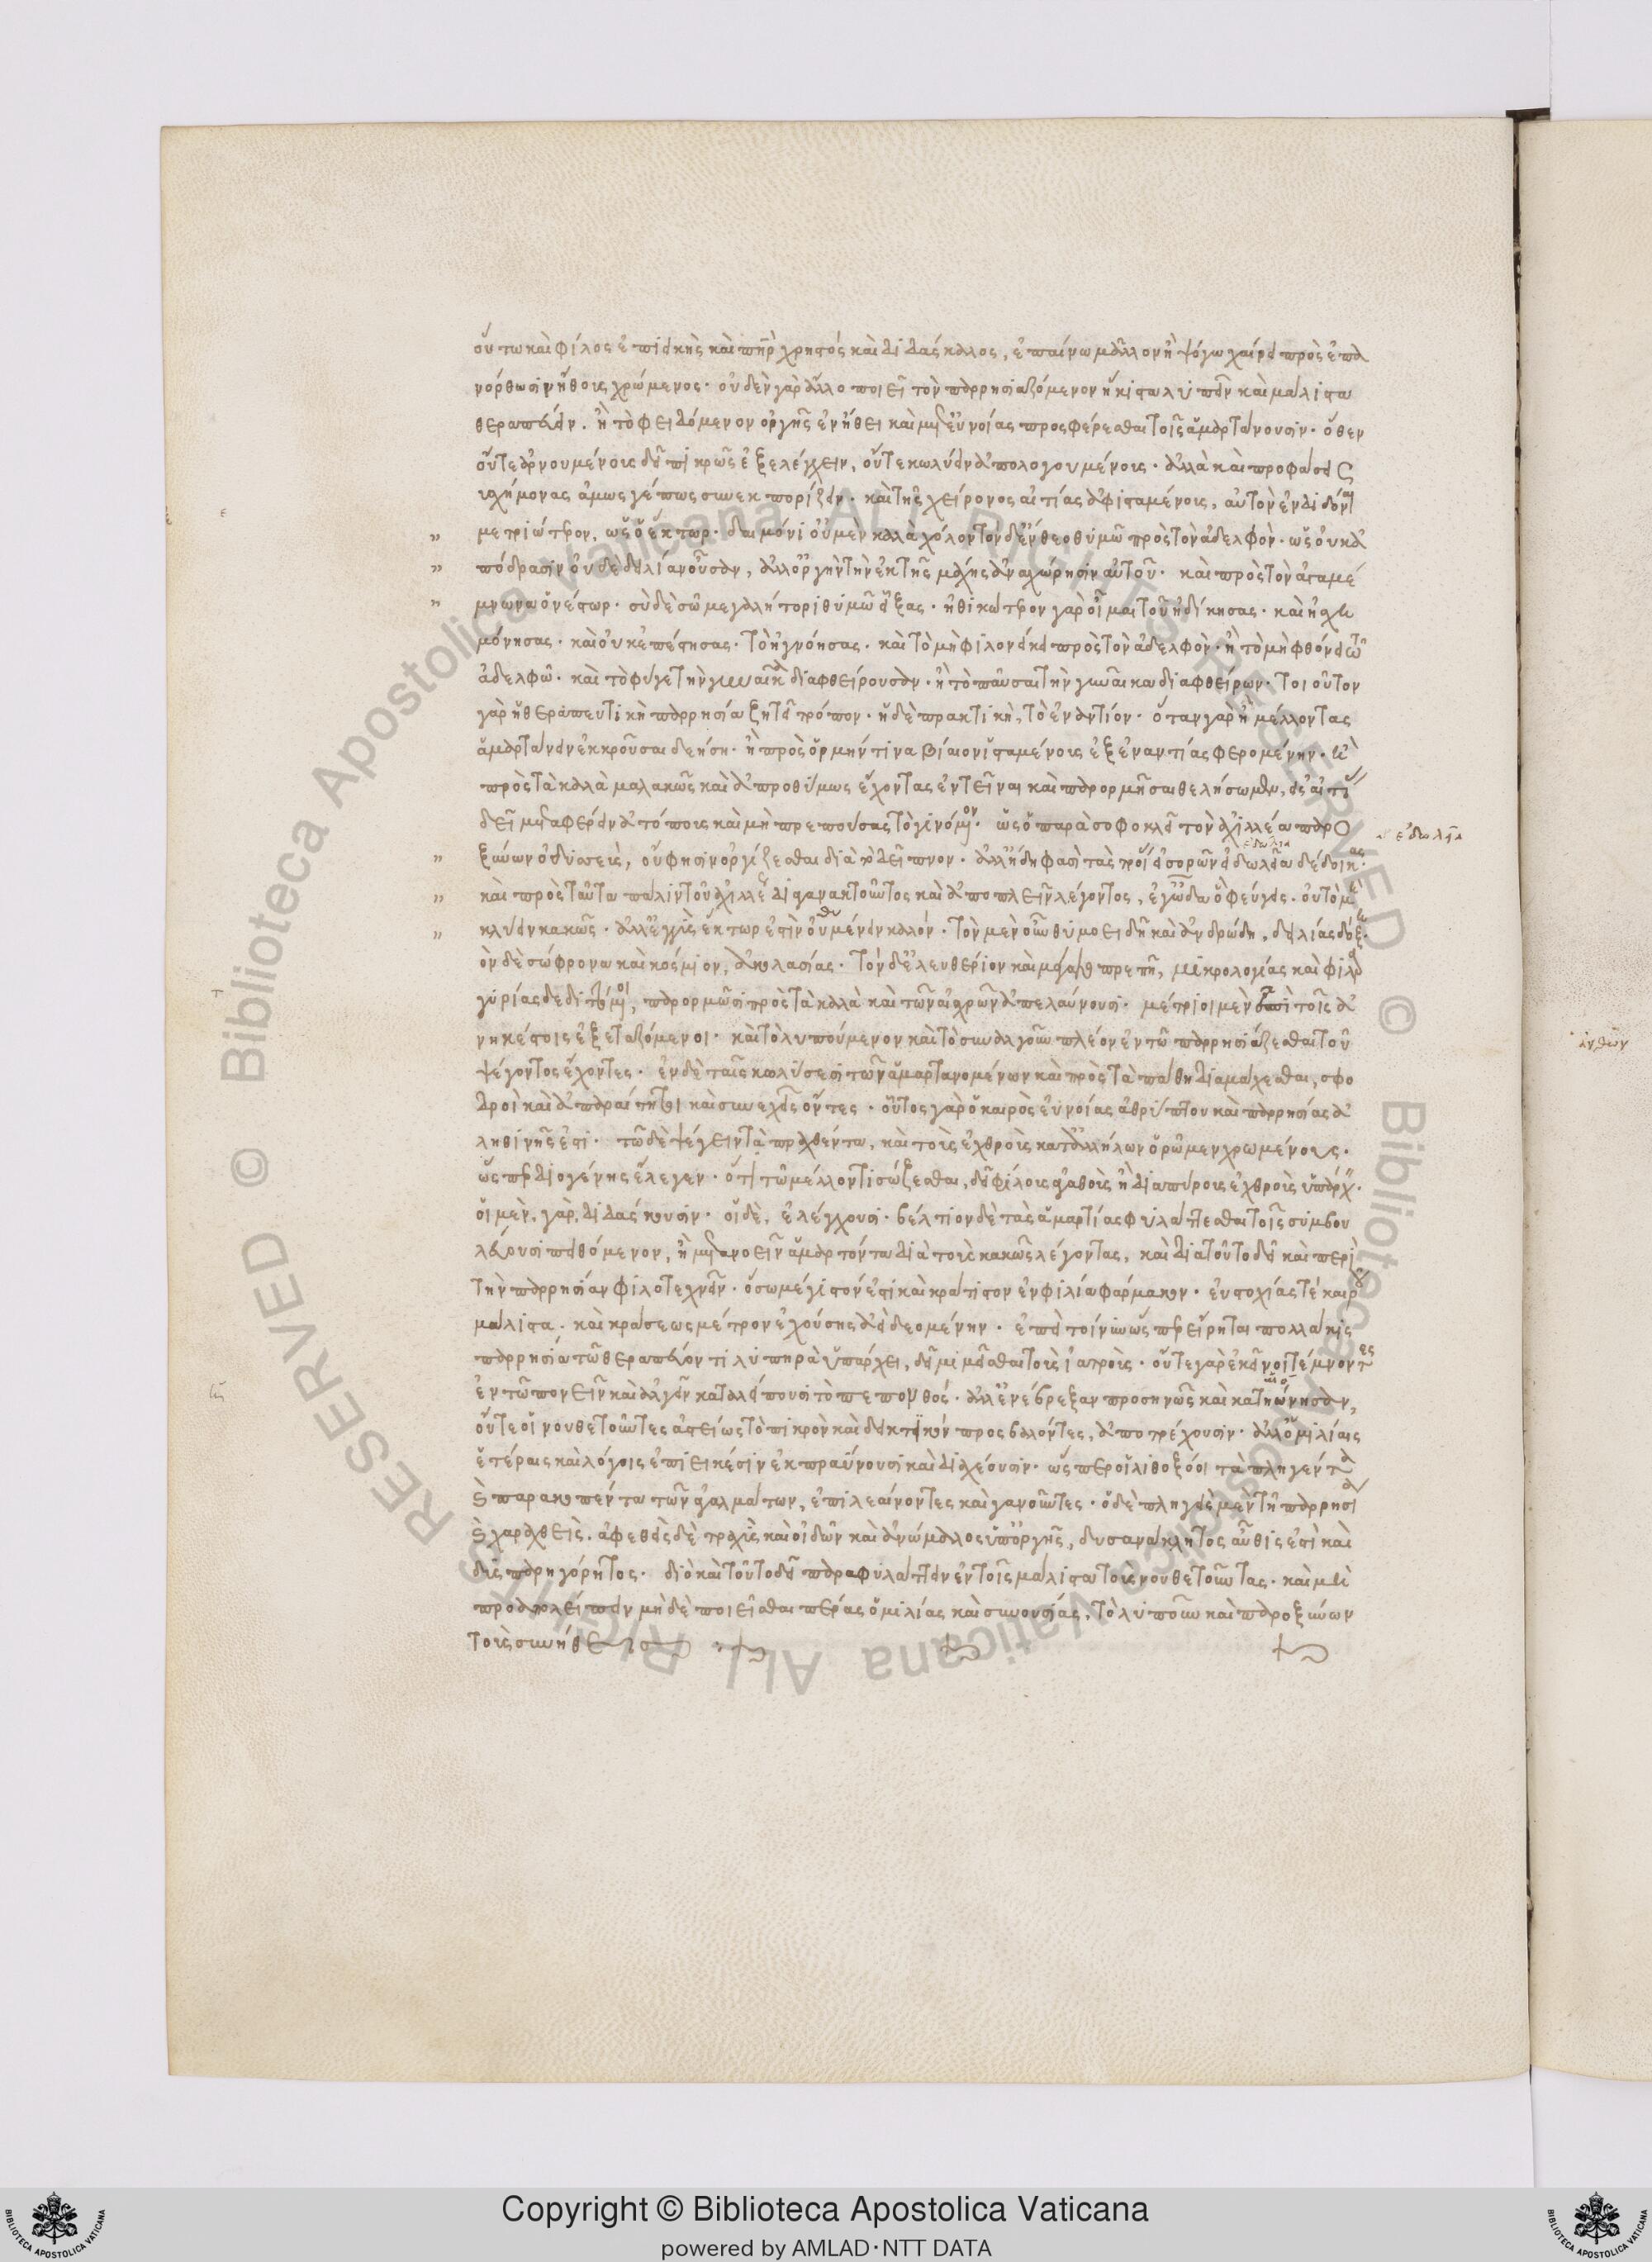 οὕτω καὶ φίλος ἐπιεικὴς καὶ πατὴρ χρηστὸς καὶ διδάσκαλος, ἐπαίνω μᾶλλον ἢ ψόγω χαίρει πρὸς ἐπα
νόρθωσιν ἤθους χρώμενος. οὐδὲν γὰρ ἄλλο ποιεῖ τὸν παρρησιαζόμενον ἥκιστα λυπεῖν καὶ μάλιστα
θεραπεύειν. ἢ τὸ φειδόμενον ὀργῆς ἐν ἤθει καὶ μετ' εὐνοίας προσφέρεσθαι τοῖς ἁμαρτάνουσιν. ὅθεν
οὔτε ἀρνουμένους δεῖ πικρῶς ἐξελέγχειν, οὔτε κωλύειν ἀπολογουμένους. ἀλλὰ καὶ προφάσεις
εὐσχήμονας ἁμῶς γέ πως συνεκπορίζειν. καὶ τῆς χείρονος αἰτίας ἀφισταμένους, αὐτὸν ἐνδιδόναι
μετριώτερον, ὡς ὁ ἕκτωρ. δαιμόνι οὐ μὲν καλὰ χόλον τόνδ' ἔνθεο θυμῶ πρὸς τὸν ἀδελφὸν. ὡς οὐκ ἀ
πόδρασιν οὐδὲ δειλίαν οὖσαν, ἀλλ' ὀργὴν τὴν ἐκ τῆς μάχης ἀναχώρησιν αὐτοῦ. καὶ πρὸς τὸν ἀγαμέ
μνονα ὁ νέστωρ. σὺ δὲ σῶ μεγαλήτορι θυμῶ εἴξας. ἠθικώτερον γὰρ οἶμαι τοῦ ἠδίκησας. καὶ ἠσχη
μόνησας. καὶ οὐκ ἐπέστησας. τὸ ἠγνόησας. καὶ τὸ μὴ φιλονείκει πρὸς τὸν ἀδελφὸν. ἢ τὸ μὴ φθόνει τῶ
ἀδελφῶ. καὶ τὸ φύγε τὴν γυναῖκα διαφθείρουσαν. ἢ τὸ παῦσαι τὴν γυναῖκα διαφθείρων. τοιοῦτον
γὰρ ἡ θεραπευτικὴ παρρησία ζητεῖ τρόπον. ἡ δὲ πρακτικὴ, τὸ ἐναντίον. ὅταν γὰρ ἢ μέλλοντας
ἁμαρτάνειν ἐκκροῦσαι δεήση. ἢ πρὸς ὁρμήν τινα βίαιον ἱσταμένους ἐξ ἐναντίας φερομένην. ἢ
πρὸς τὰ καλὰ μαλακῶς καὶ ἀπροθύμως ἔχοντας ἐντεῖναι καὶ παρορμῆσαι θελήσωμεν, εἰς αἰτίας
δεῖ μεταφέρειν ἀτόπους καὶ μὴ πρεπούσας τὸ γινόμενον. ὡς ὁ παρὰ σοφοκλεῖ τὸν ἀχιλλέα παρο
ξύνων ὀδυσσεὺς, οὔ φησιν ὀργίζεσθαι διὰ τὸ δεῖπνον. ἀλλ' ἤδη φασὶ τὰς τροίας εἰσορῶν ἑδώλια δέδοικας.
καὶ πρὸς ταῦτα πάλιν τοῦ ἀχιλλέως διαγανακτοῦντος καὶ ἀποπλεῖν λέγοντος, ἐγῶδα ὃ φεύγεις. οὐ τὸ μὴ
κλύειν κακῶς. ἀλλ' ἐγγὺς ἕκτωρ ἐστὶν οὐ μένειν καλόν. τὸν μὲν οὖν θυμοειδῆ καὶ ἀνδρώδη, δειλίας δόξη.
τὸν δὲ σώφρονα καὶ κόσμιον, ἀκολασίας. τὸν δ' ἐλευθέριον καὶ μεγαλοπρεπῆ, μικρολογίας καὶ φιλαρ
γυρίας δεδιττόμενοι, παρορμῶσι πρὸς τὰ καλὰ καὶ τῶν αἰσχρῶν ἀπελαύνουσι. μέτριοι μὲν ἐπὶ τοῖς ἀ
νηκέστοις ἐξεταζόμενοι. καὶ τὸ λυπούμενον καὶ τὸ συναλγοῦν πλέον ἐν τῶ παρρησιάζεσθαι τοῦ
ψέγοντος ἔχοντες. ἐν δὲ ταῖς κωλύσεσι τῶν ἁμαρτανομένων καὶ πρὸς τὰ πάθη διαμάχεσθαι, σφο
δροὶ καὶ ἀπαραίτητοι καὶ συνεχεῖς ὄντες. οὗτος γὰρ ὁ καιρὸς εὐνοίας ἀθρύπτου καὶ παρρησίας ἀ
ληθινῆς ἐστι. τῶ δὲ ψέγειν τὰ πραχθέντα, καὶ τοὺς ἐχθροὺς κατ' ἀλλήλων ὁρῶμεν χρωμένους.
ὥσπερ διογένης ἔλεγεν. ὅτι τῶ μέλλοντι σώζεσθαι, δεῖ φίλους ἀγαθοὺς ἢ διαπύρους ἐχθροὺς ὑπάρχειν.
οἱ μὲν. γὰρ. διδάσκουσιν. οἱ δὲ, ἐλέγχουσι. βέλτιον δὲ τὰς ἁμαρτίας φυλάττεσθαι τοῖς συμβου
λεύουσι πειθόμενον, ἢ μετανοεῖν ἁμαρτόντα διὰ τοὺς κακῶς λέγοντας, καὶ διὰ τοῦτο δεῖ καὶ περὶ
τὴν παρρησίαν φιλοτεχνεῖν. ὅσω μέγιστόν ἐστι καὶ κράτιστον ἐν φιλία φάρμακον. εὐστοχίας τε καιροῦ
μάλιστα. καὶ κράσεως μέτρον ἐχούσης ἀεὶ δεομένην. ἐπεὶ τοίνυν ὥσπερ εἴρηται πολλάκις
παρρησία τῶ θεραπεύοντι λυπηρὰ ὑπάρχει, δεῖ μιμεῖσθαι τοὺς ἰατροὺς. οὔτε γὰρ ἐκεῖνοι τέμνοντες
ἐν τῶ πονεῖν καὶ ἀλγεῖν καταλείπουσι τὸ πεπονθός. ἀλλ' ἐνέβρεξαν προσηνῶς καὶ κατηόνησαν,
οὔτε οἱ νουθετοῦντες ἀστείως τὸ πικρὸν καὶ δηκτικὸν προσβαλόντες, ἀποτρέχουσιν. ἀλλ' ὁμιλίαις
ἑτέραις καὶ λόγοις ἐπιεικέσιν ἐκπραΰνουσι καὶ διαχέουσιν. ὥσπερ οἱ λιθοξόοι τὰ πληγέντα
καὶ παρακοπέντα τῶν ἀγαλμάτων, ἐπιλεαίνοντες καὶ γανοῦντες. ὁ δὲ πληγεὶς μὲν τῆ παρρησία
καὶ χαραχθεὶς. ἀφεθεὶς δὲ τραχὺς καὶ οἰδῶν καὶ ἀνώμαλος ὑπ' ὀργῆς, δυσανάκλητος αὖθίς ἐστι καὶ
δυσπαρηγόρητος. διὸ καὶ τοῦτο δεῖ παραφυλάττειν ἐν τοῖς μάλιστα τοὺς νουθετοῦντας. καὶ μὴ
προαπολείπειν μηδὲ ποιεῖσθαι πέρας ὁμιλίας καὶ συνουσίας, τὸ λυποῦν καὶ παροξύνον
τοὺς συνήθεις
Copyright © Biblioteca Apostolica Vaticana
powered by AMLAD·NTT DATA